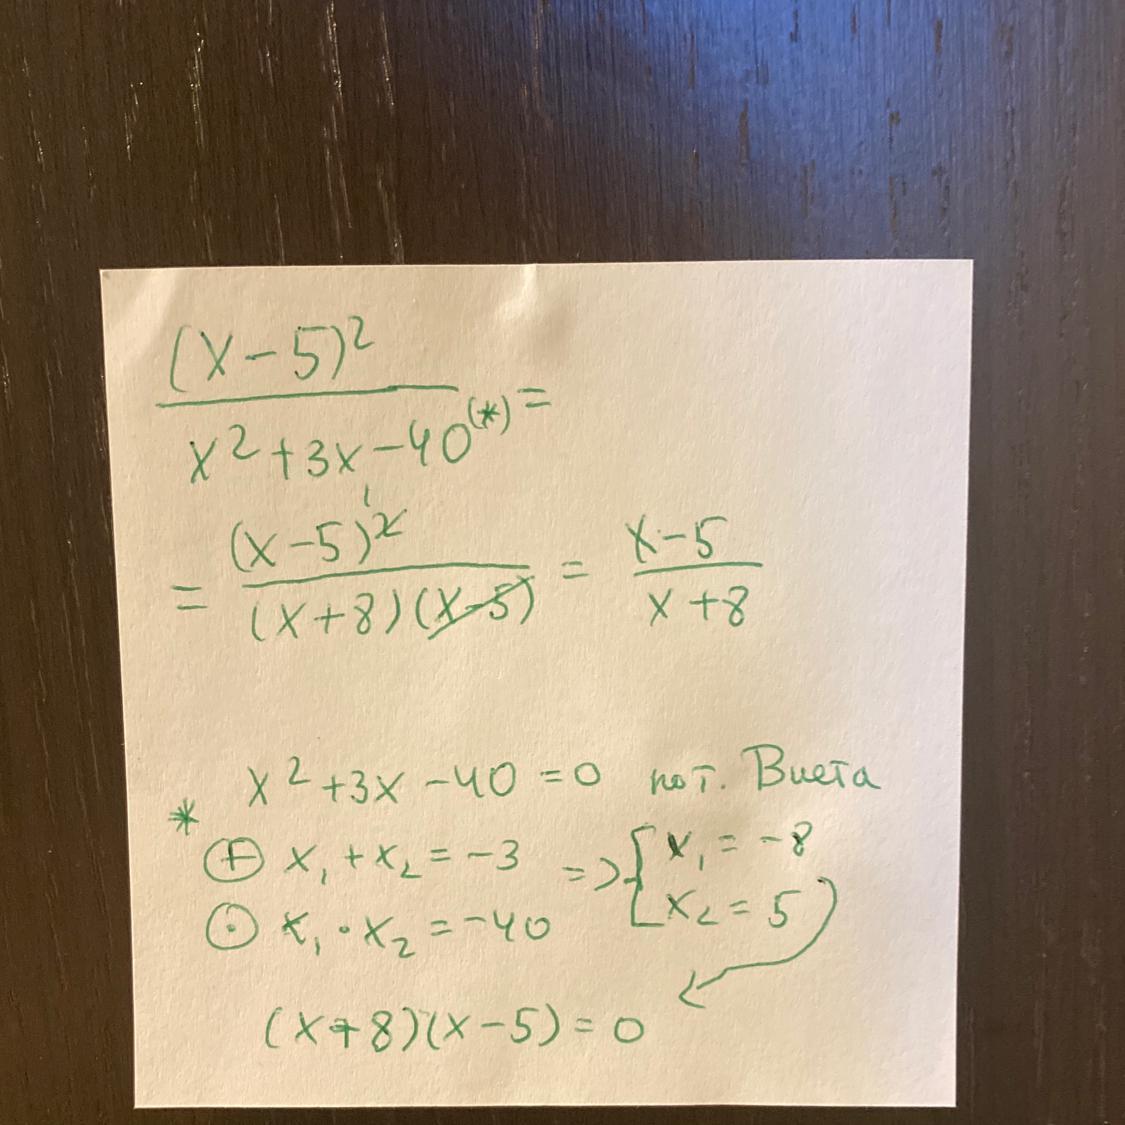 (x-5)²
x²+3x-40(*) =
= (x-5)² 1 / (x+8)(x-5) = x-5 / x+8
* x²+3x-40=0 по т. Виета
⊕ x₁+x₂=-3 => [x₁=-8
⊙ x₁·x₂=-40 x₂=5
(x+8)(x-5)=0